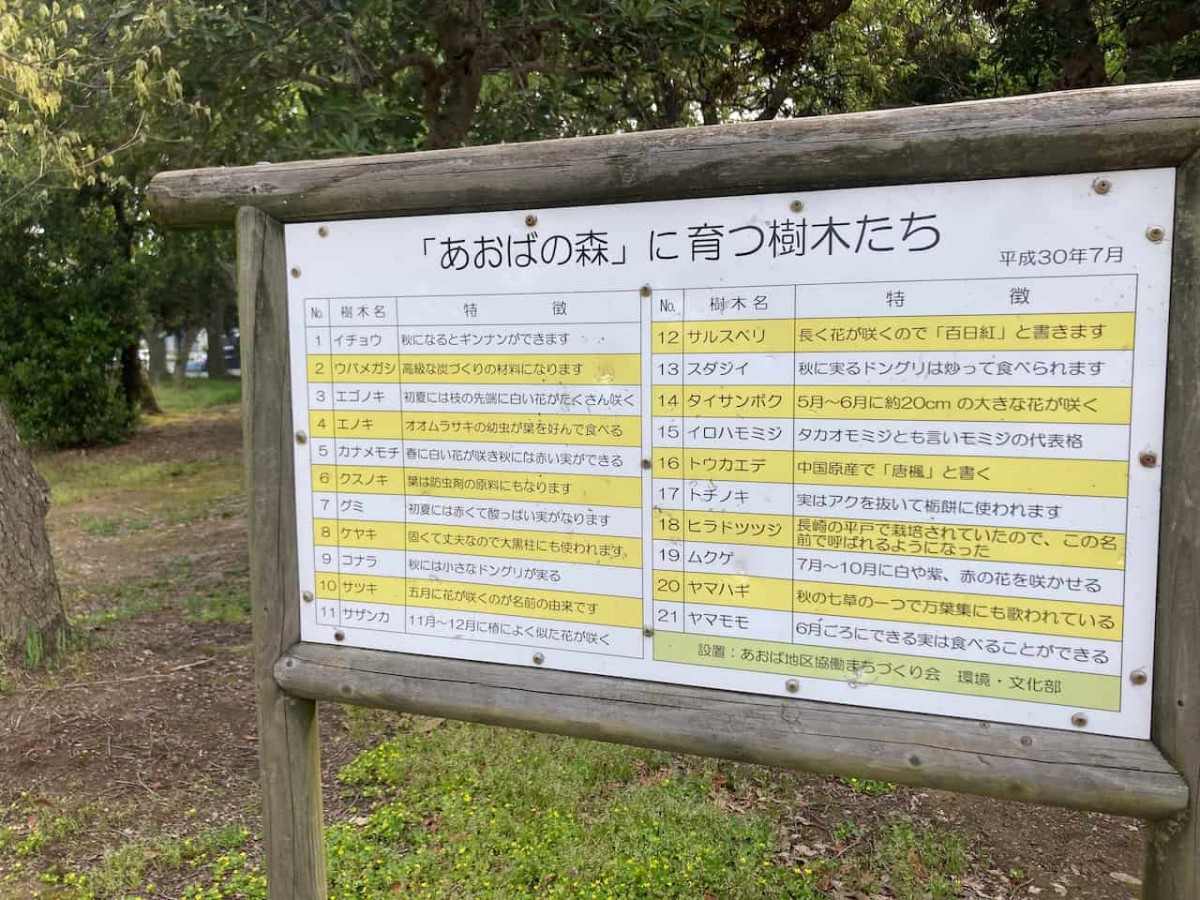 「あおばの森」に育つ樹木たち
平成30年7月
No. 樹木名 特 徴
1 イチョウ 秋になるとギンナンができます
2 ウバメガシ 高級な炭づくりの材料になります
3 エゴノキ 初夏には枝の先端に白い花がたくさん咲く
4 エノキ オオムラサキの幼虫が葉を好んで食べる
5 カナメモチ 春に白い花が咲き秋には赤い実ができる
6 クスノキ 葉は防虫剤の原料にもなります
7 グミ 初夏には赤くて酸っぱい実がなります
8 ケヤキ 固くて丈夫なので大黒柱にも使われます。
9 コナラ 秋には小さなドングリが実る
10 サツキ 五月に花が咲くのが名前の由来です
11 サザンカ 11月～12月に椿によく似た花が咲く
No. 樹木名 特 徴
12 サルスベリ 長く花が咲くので「百日紅」と書きます
13 スダジイ 秋に実るドングリは炒って食べられます
14 タイサンボク 5月～6月に約20cm の大きな花が咲く
15 イロハモミジ タカオモミジとも言いモミジの代表格
16 トウカエデ 中国原産で「唐楓」と書く
17 トチノキ 実はアクを抜いて栃餅に使われます
18 ヒラドツツジ 長崎の平戸で栽培されていたので、この名
前で呼ばれるようになった
19 ムクゲ 7月～10月に白や紫、赤の花を咲かせる
20 ヤマハギ 秋の七草の一つで万葉集にも歌われている
21 ヤマモモ 6月ごろにできる実は食べることができる
設置：あおば地区協働まちづくり会 環境・文化部